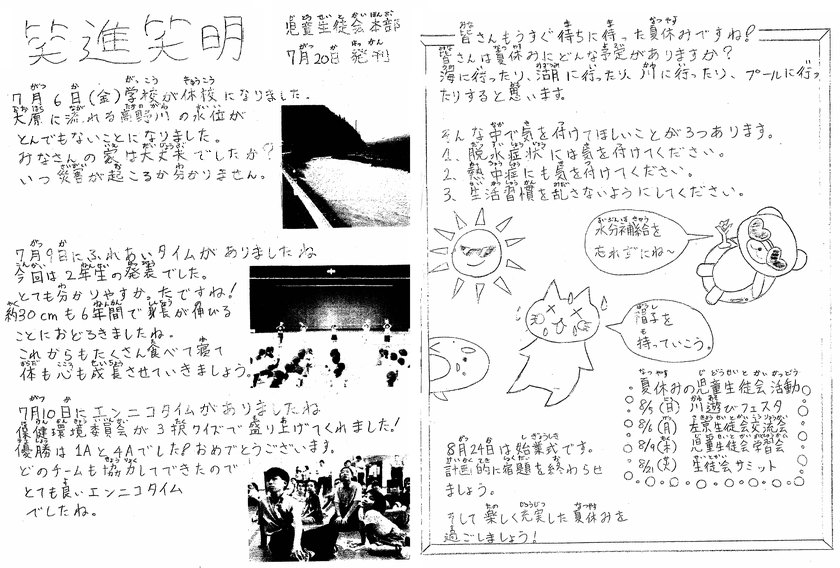 笑進笑明
児童生徒会本部
7月20日 発刊
7月6日(金)学校が休校になりました。
大原に流れる高野川の水位が
とんでもないことになりました。
みなさんの家は大丈夫でしたか?
いつ災害が起こるか分かりません。
7月9日にふれあいタイムがありましたね
今回は2年生の発表でした。
とても分かりやすかったですね!
約30cmも6年間で身長が伸びる
ことにおどろきましたね。
これからもたくさん食べて寝て
体も心も成長させていきましょう。
7月10日にエンニコタイムがありましたね
保健環境委員会が3択クイズで盛り上げてくれました!
優勝は1Aと4Aでした!おめでとうございます。
どのチームも協力してできたので
とても良いエンニコタイム
でしたね。
皆さんもうすぐ待ちに待った夏休みですね!
皆さんは夏休みにどんな予定がありますか?
海に行ったり、湖に行ったり、川に行ったり、プールに行っ
たりすると思います。
そんな中で気を付けてほしいことが3つあります。
1、脱水症状には気を付けてください。
2、熱中症にも気を付けてください。
3、生活習慣を乱さないようにしてください。
水分補給を
忘れずにね~
帽子を
持っていこう。
夏休みの児童生徒会活動
8/5(日) 川遊びフェスタ
8/6(月) 左京生徒会交流会
8/9(木) 児童生徒会学習会
8/21(火) 生徒会サミット
8月24日は始業式です。
計画的に宿題を終わらせ
ましょう。
そして楽しく充実した夏休みを
過ごしましょう!